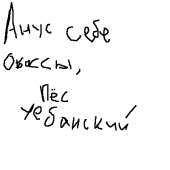 Анус себе
Обоссы,
Пёс
уебанский